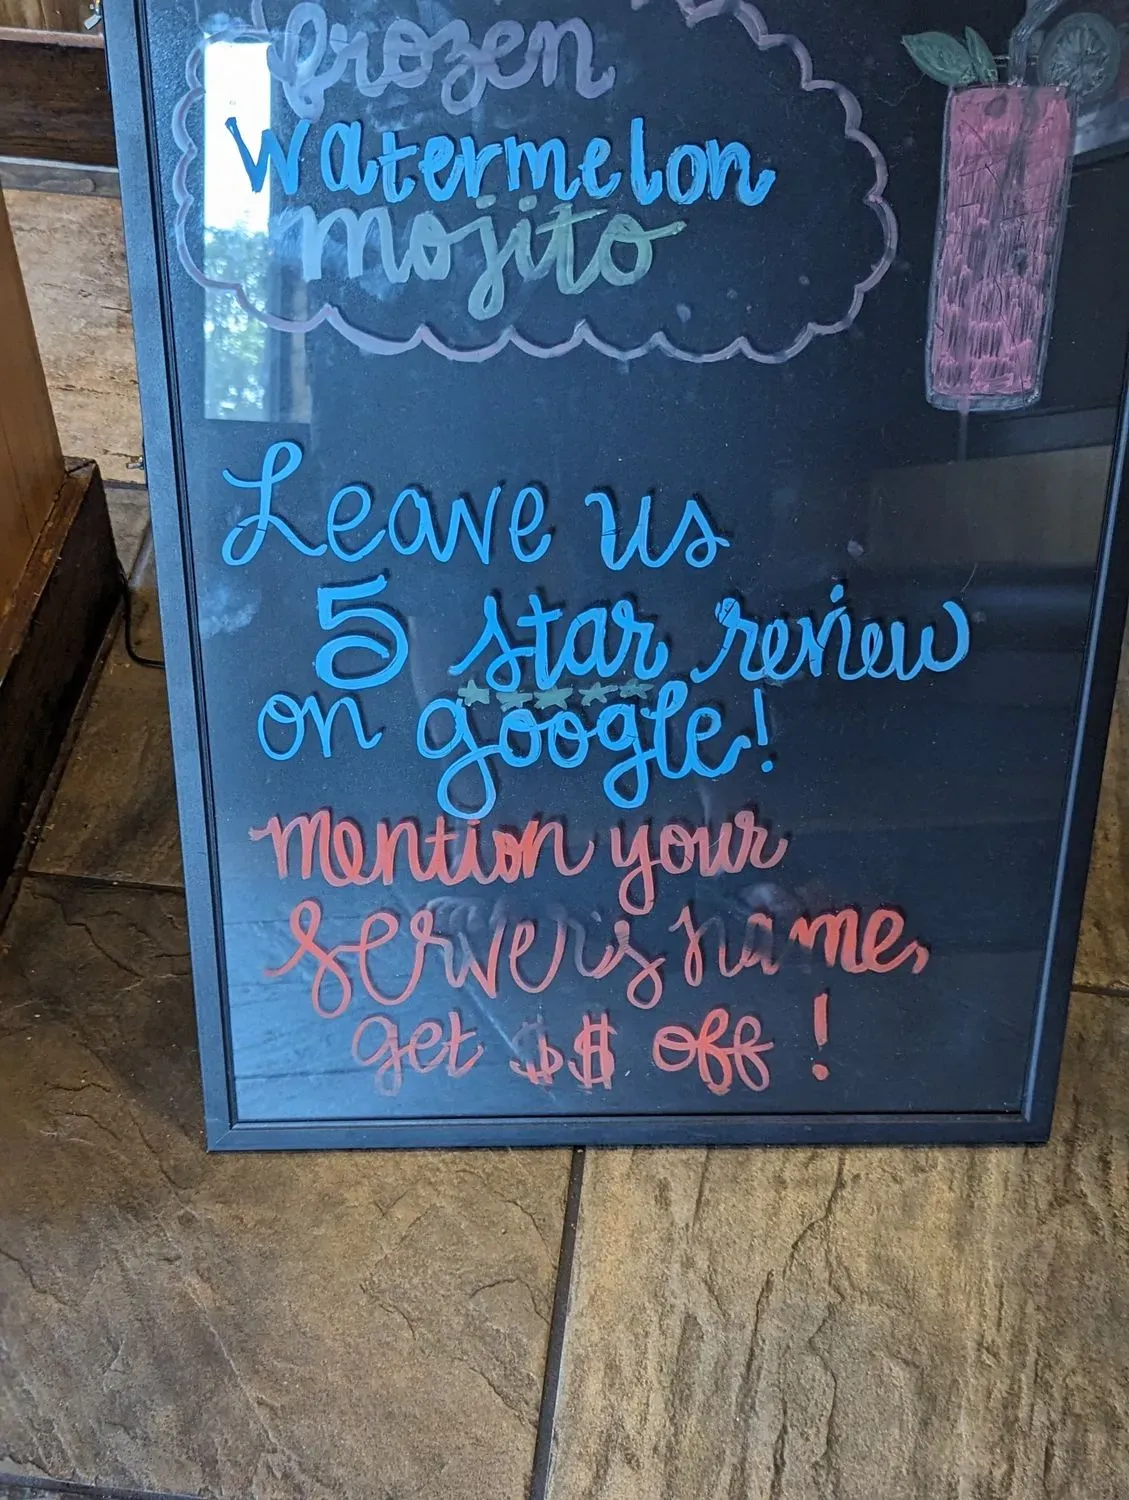 frozen
watermelon
mojito
Leave us
5 star review
on google!
mention your
server's name,
get $$ off!